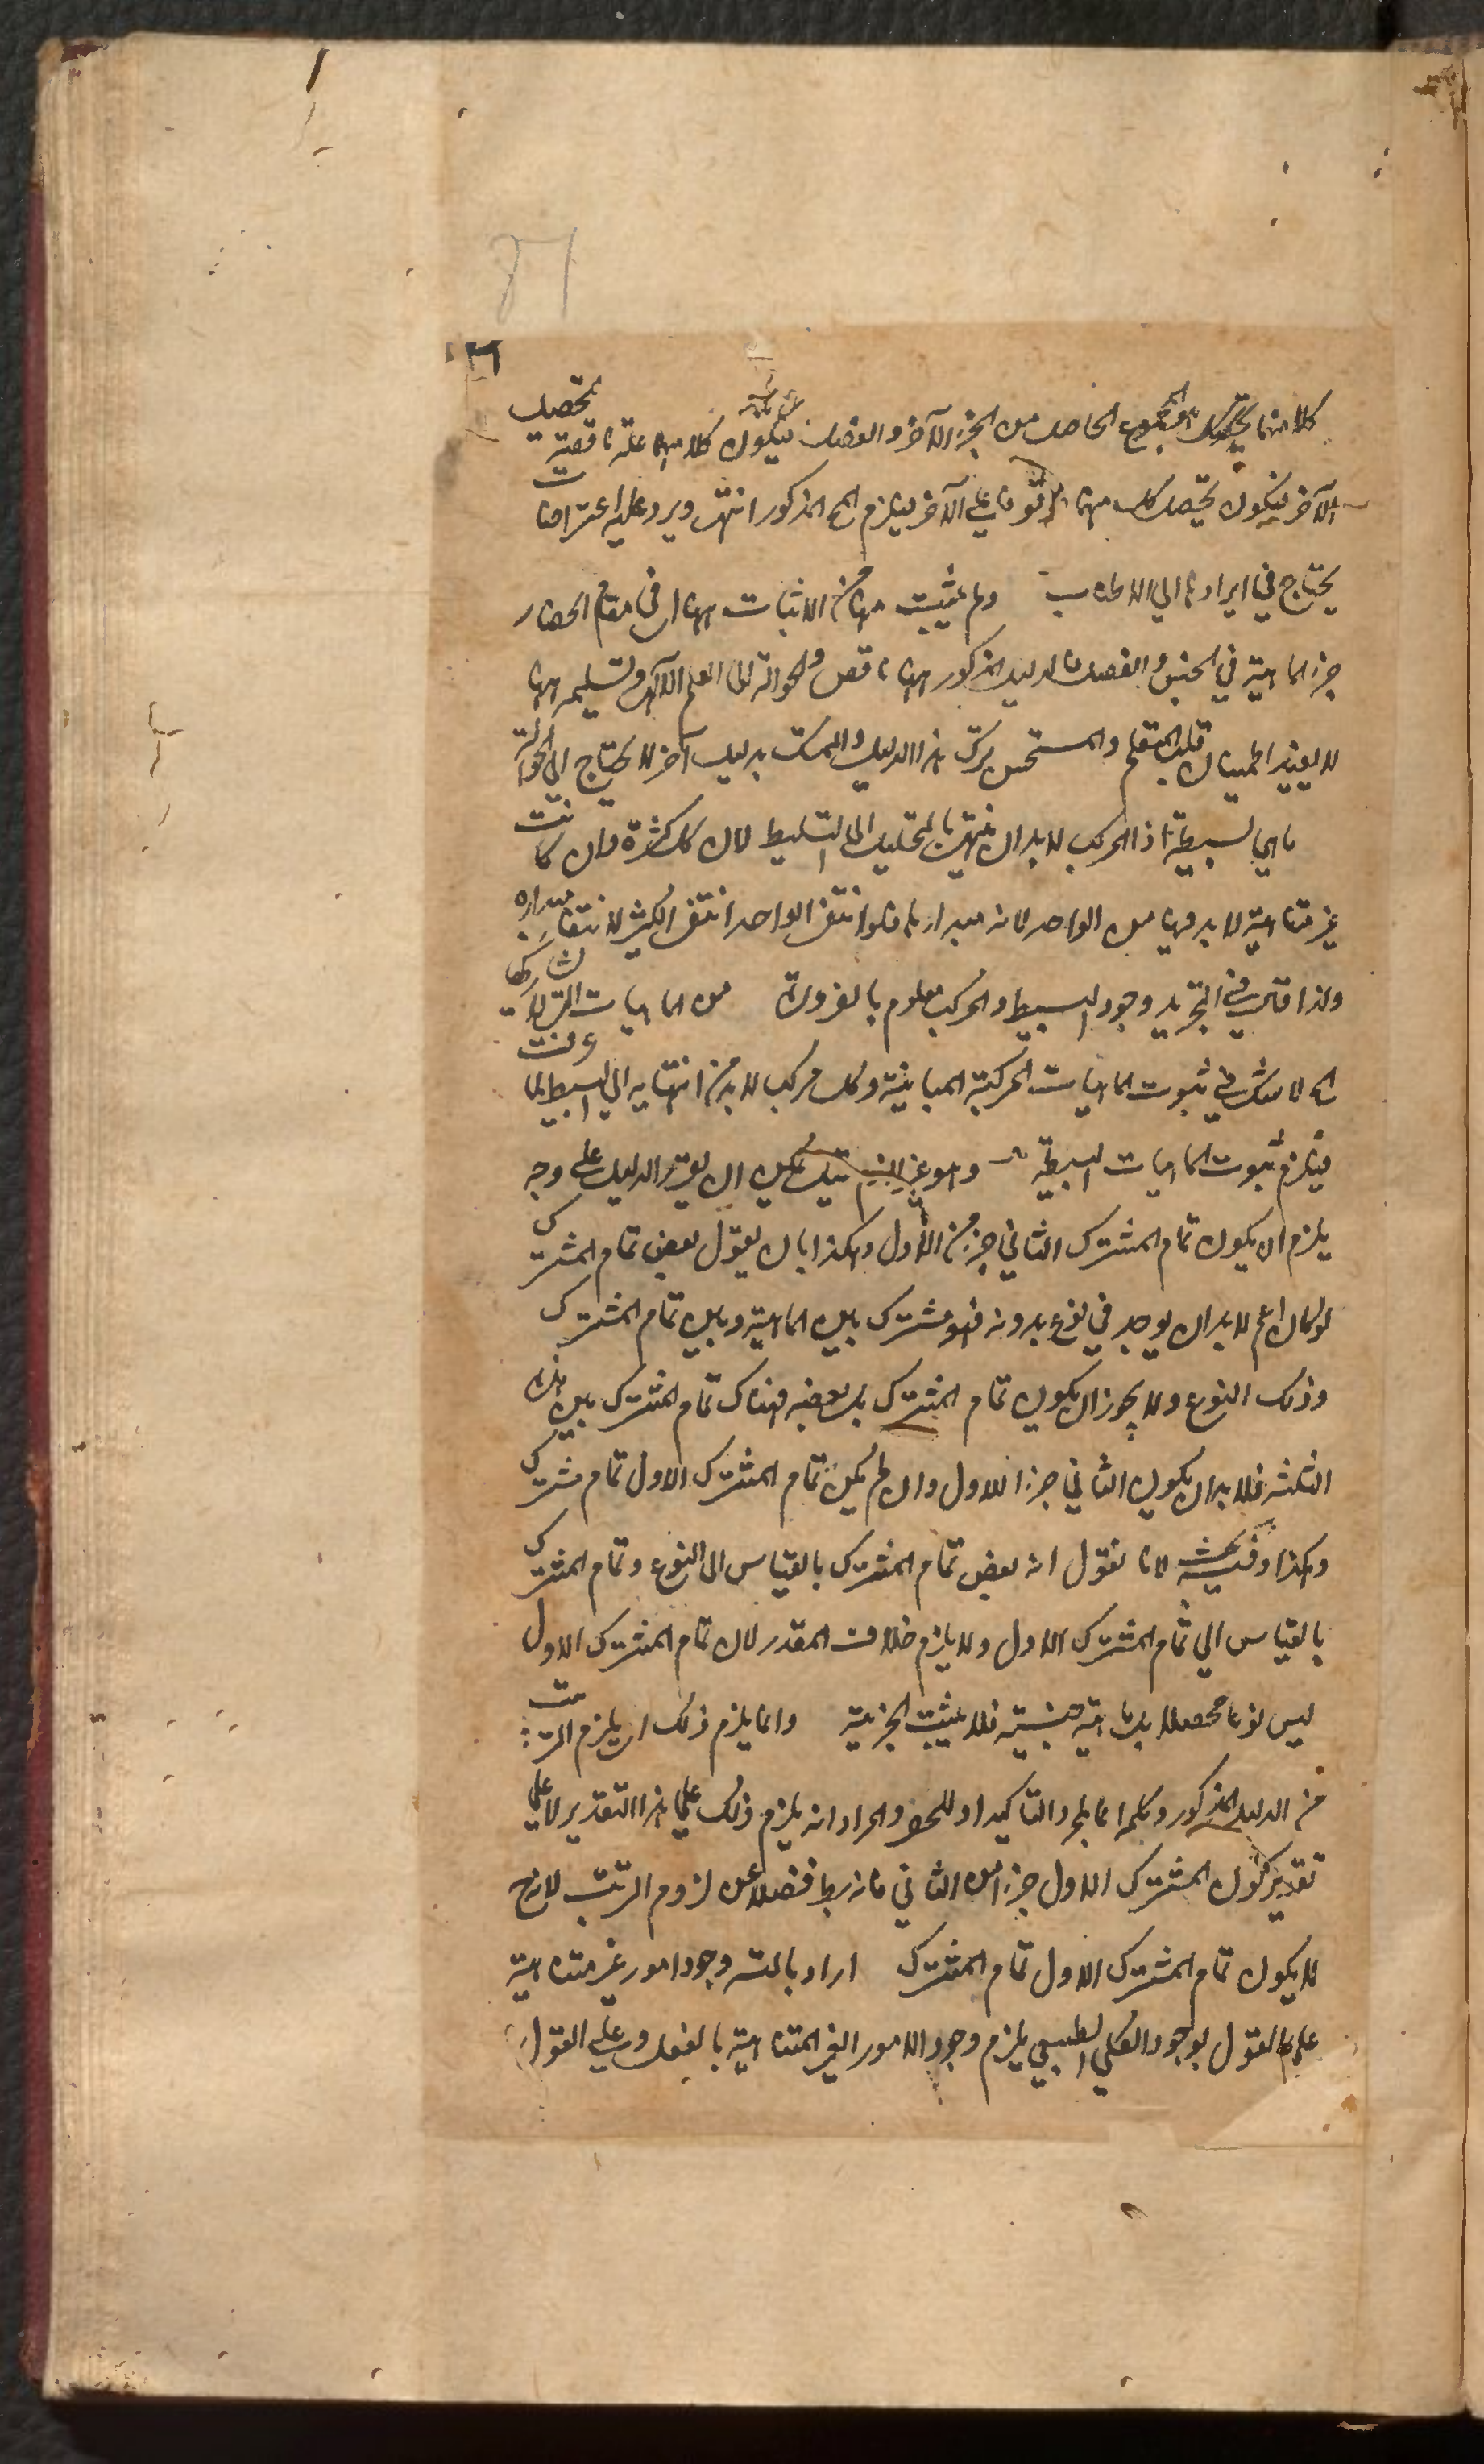 ٣٦
كلا منهما يحصل بالمجموع الحاصل من الجزء الآخر والفصل فيكون كلا منهما علة ناقصة لتحصيل
الآخر فيكون تحصل كل منهما موقوفا على الآخر فيلزم المح المذكور انتهى ويرد عليه اعتراضات
يحتاج في ايرادها الى الاطناب ولم يثبت منها الاثبات ههنا في مقام انحصار
جزء الماهية في الجنس والفصل فالدليل المذكور ههنا ناقص والحوالة الى العلم الآلهى وتسليمه ههنا
لا يفيد اطمينان قلب المتعلم والمستحسن ترك هذا الدليل والتمسك بدليل آخر لا يحتاج الى الحوالة
ماهي بسيطة اذ المركب لا بد ان ينتهى بالتحليل الى البسيط لان كل كثرة وان كانت
غير متناهية لا بد فيها من الواحد لانه مبدارها فلو انتفى الواحد انتفى الكثير لانتفاء مبداره
ولذا قال في التجريد وجود البسيط والمركب معلوم بالضرورة من الماهيات التي لا تشاركها
اى لا شك في ثبوت الماهيات المركبة المباينة وكل مركب لا بد من انتهايه الى البسيط لما عرفت
فيلزم ثبوت الماهيات البسيطة وهو غير لازم قيل يمكن ان يقرر الدليل على وجه
يلزم ان يكون تمام المشترك الثاني جزء من الاول وهكذا بان يقول بعض تمام المشترك
لو كان اعم لا بد ان يوجد في نوع بدونه فهو مشترك بين الماهية وبين تمام المشترك
وذلك النوع ولا يجوز ان يكون تمام المشترك بل بعضه فهناك تمام المشترك بين هذه
الثلثة فلا بد ان يكون الثاني جزءا للاول وان لم يكن تمام المشترك الاول تمام مشترك
وهكذا وفيه بحث لانا نقول انه بعض تمام المشترك بالقياس الى النوع وتمام المشترك
بالقياس الى تمام المشترك الاول ولا يلزم خلاف المقدر لان تمام المشترك الاول
ليس نوعا محصلا بل ماهية جنسية فلا يثبت الجزئية وانما يلزم ذلك ان يلزم الترتب
من الدليل المذكور وكلمة انما لمجرد التاكيد او للحصر والمراد انه يلزم ذلك على هذا التقدير لا على
تقدير كون المشترك الاول جزءا من الثاني فانه بط فضلا عن لزوم الترتب لانه ح
لا يكون تمام المشترك الاول تمام المشترك اراد بالتسه وجود امور غير متناهية
على القول بوجود الكلي الطبيعي يلزم وجود الامور الغير المتناهية بالفعل وعلى القول